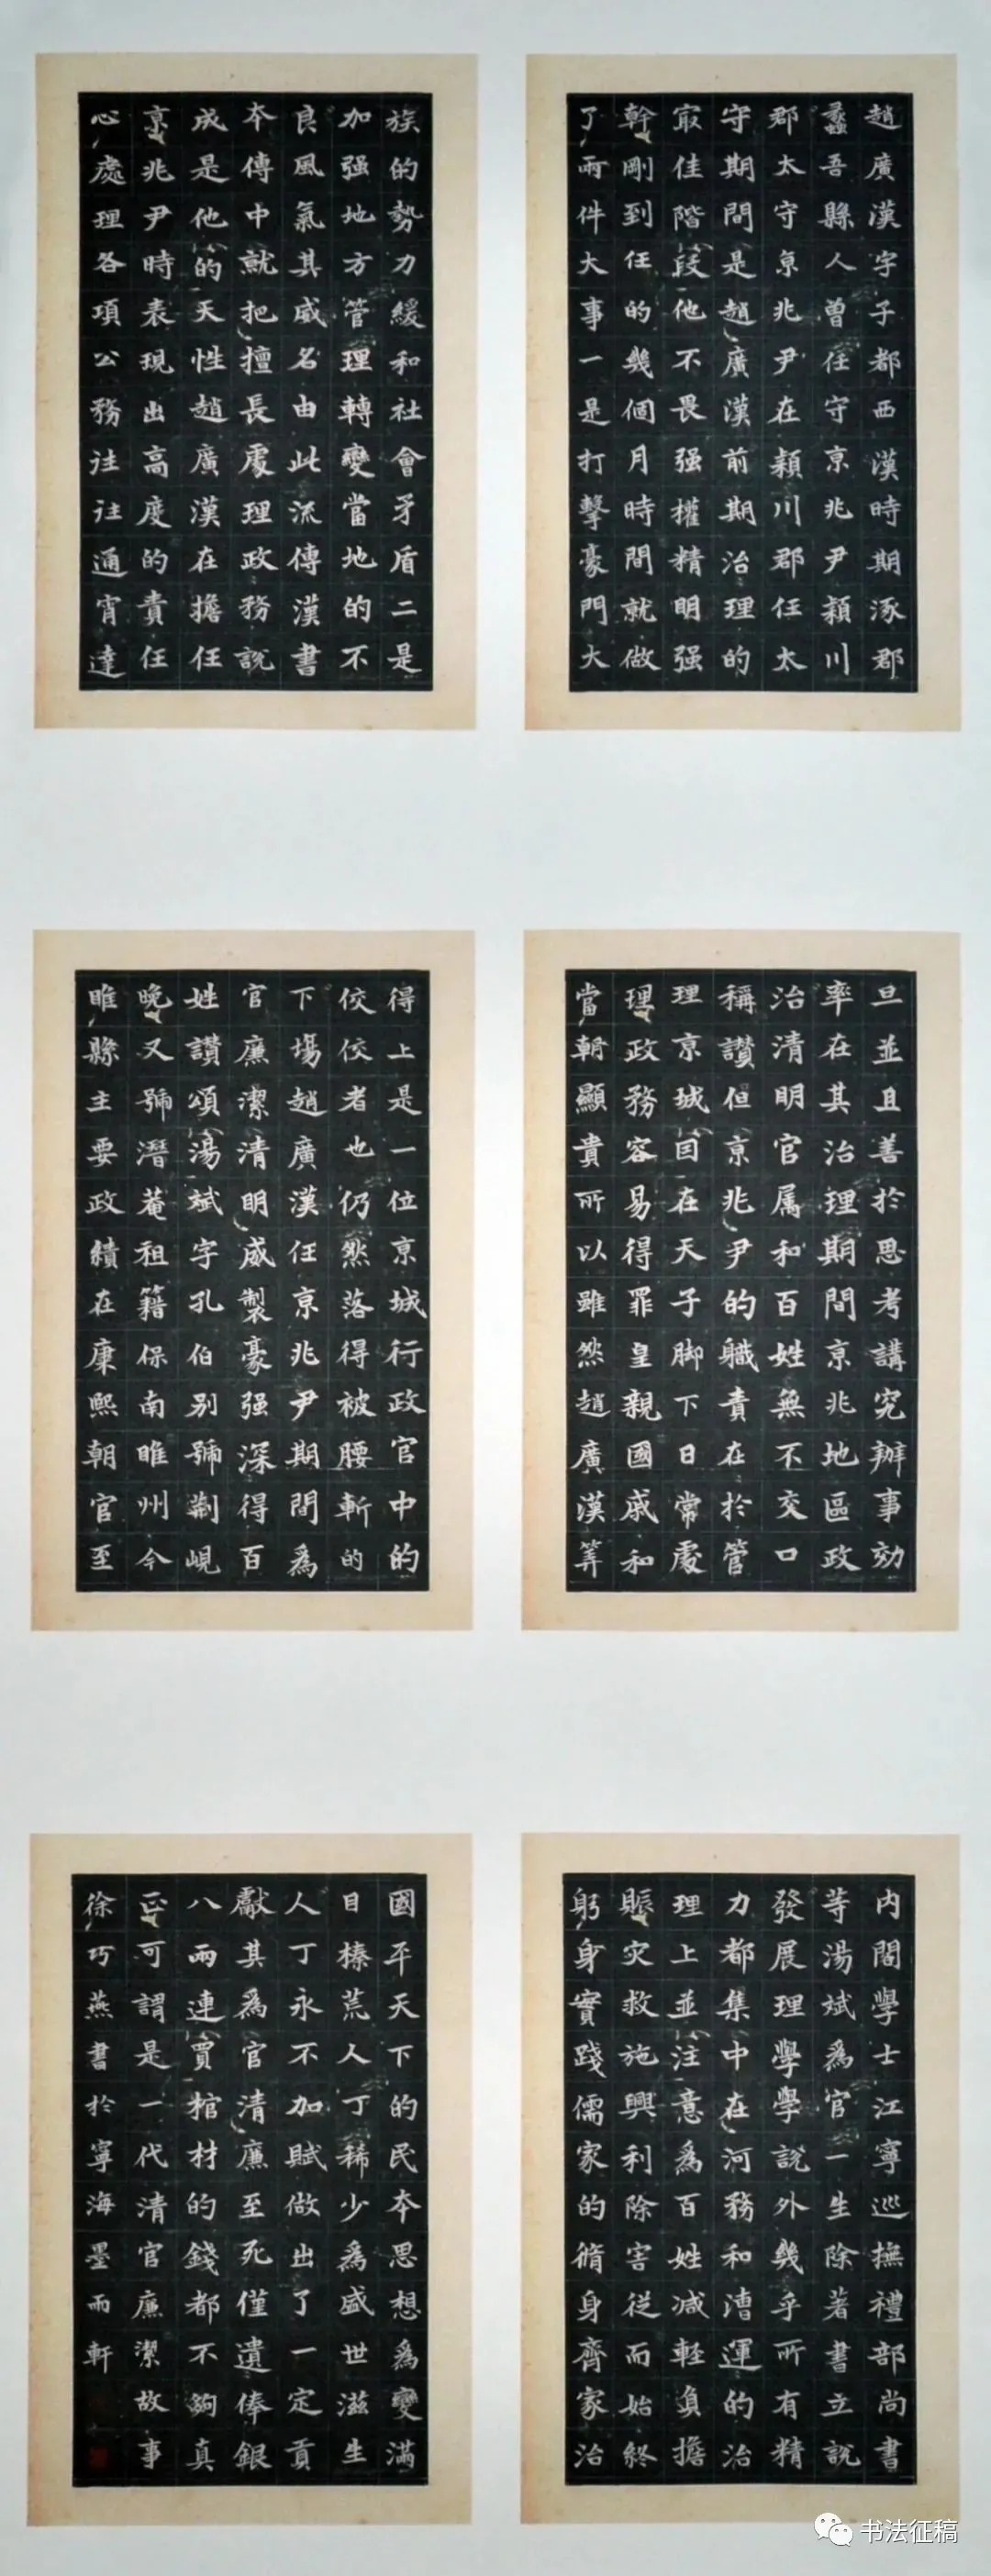 趙廣漢字子都西漢時期涿郡
蠡吾縣人曾任守京兆尹潁川
郡太守京兆尹在潁川郡任太
守期間是趙廣漢前期治理的
㝡佳階段他不畏强權精明强
幹剛到任的幾個月時間就做
了兩件大事一是打擊豪門大
族的勢力緩和社會矛盾二是
加强地方管理轉變當地的不
良風氣其威名由此流傳漢書
本傳中就把擅長處理政務説
成是他的天性趙廣漢在擔任
京兆尹時表現出高度的責任
心處理各項公務注注通宵達
旦並且善於思考講究辦事効
率在其治理期間京兆地區政
治清明官属和百姓無不交口
稱讃但京兆尹的職責在於管
理京城因在天子脚下日常處
理政務容易得罪皇親國戚和
當朝顯貴所以雖然趙廣漢筭
得上是一位京城行政官中的
佼佼者也仍然落得被腰斬的
下場趙廣漢任京兆尹期間為
官廉潔清明威製豪强深得百
姓讃頌湯斌字孔伯别號荆峴
晚又號潛菴祖籍保南睢州今
睢縣主要政績在康熙朝官至
内閣學士江寧巡撫禮部尚書
等湯斌為官一生除著書立説
發展理學學説外幾乎所有精
力都集中在河務和漕運的治
理上並注意為百姓减輕負擔
賑灾救施興利除害從而始終
躬身實踐儒家的脩身齊家治
國平天下的民本思想為變滿
目榛荒人丁稀少為盛世滋生
人丁永不加賦做出了一定貢
獻其為官清廉至死僅遺俸銀
八兩連買棺材的錢都不夠真
正可謂是一代清官廉潔故事
徐巧燕書於寧海墨雨軒
书法征稿